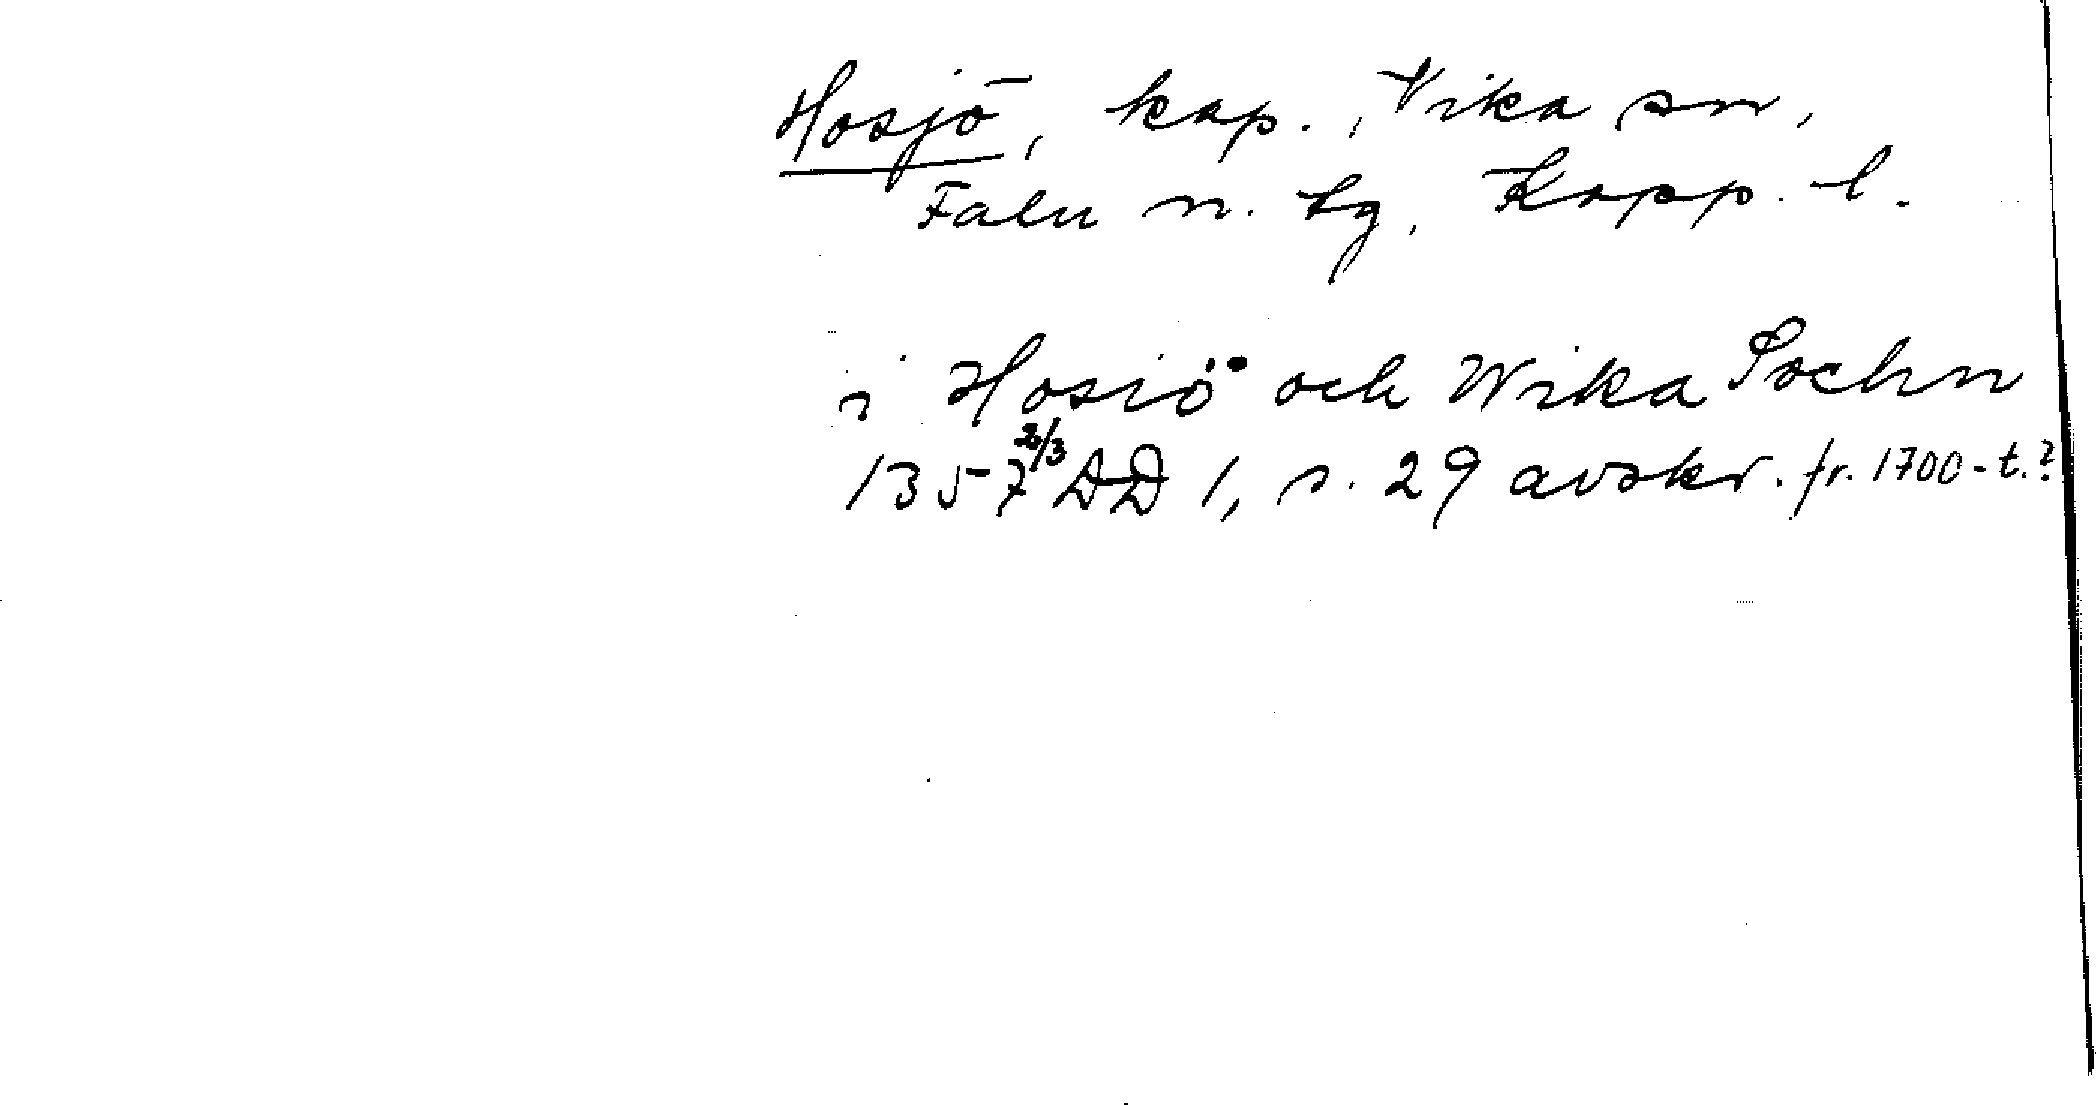 Hosjö, kap., Vika sn,
Falu n. tg, Kopp. l.
i Hosiö och Wika Sochn
1357 2/3 DD 1, s. 29 avskr. fr. 1700-t.?